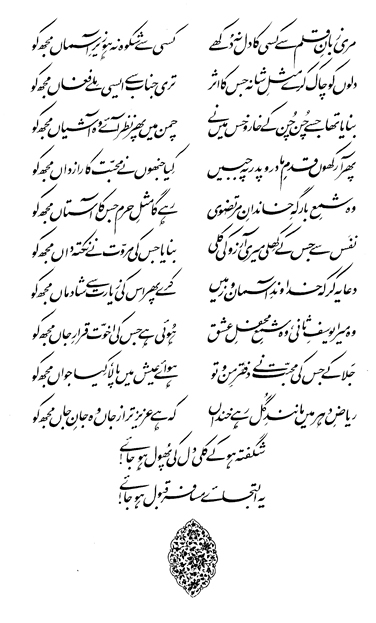 مری زبانِ قلم سے کسی کا دل نہ دُکھے کسی سے شکوہ نہ ہو زیرِ آسماں مجھ کو
دلوں کو چاک کرے مثلِ شانہ جس کا اثر تری جناب سے ایسی ملے فغاں مجھ کو
بنایا تھا جسے چُن چُن کے خار و خس میں نے چمن میں پھر نظر آئے وہ آشیاں مجھ کو
پھر آ رکھوں قدمِ مادر و پدر پہ جبیں کیا جنھوں نے محبت کا رازداں مجھ کو
وہ شمعِ بارگہِ خاندانِ مرتضوی رہے گا مثلِ حرم جس کا آستاں مجھ کو
نفَس سے جس کے کھِلی میری آرزو کی کلی بنایا جس کی مروّت نے نکتہ داں مجھ کو
دعا یہ کر کہ خداوندِ آسمان و زمیں کرے پھر اس کی زیارت سے شادماں مجھ کو
وہ میرا یوسفِ ثانی وہ شمعِ محفلِ عشق ہُوئی ہے جس کی اخوّت قرارِ جاں مجھ کو
جَلا کے جس کی محبت نے دفترِ من و تو ہوائے عیش میں پالا، کیا جواں مجھ کو
ریاضِ دہر میں مانندِ گُل رہے خنداں کہ ہے عزیز تر از جاں وہ جانِ جاں مجھ کو
شگفتہ ہو کے کلی دل کی پھُول ہو جائے!
یہ التجائے مسافر قبول ہو جائے!